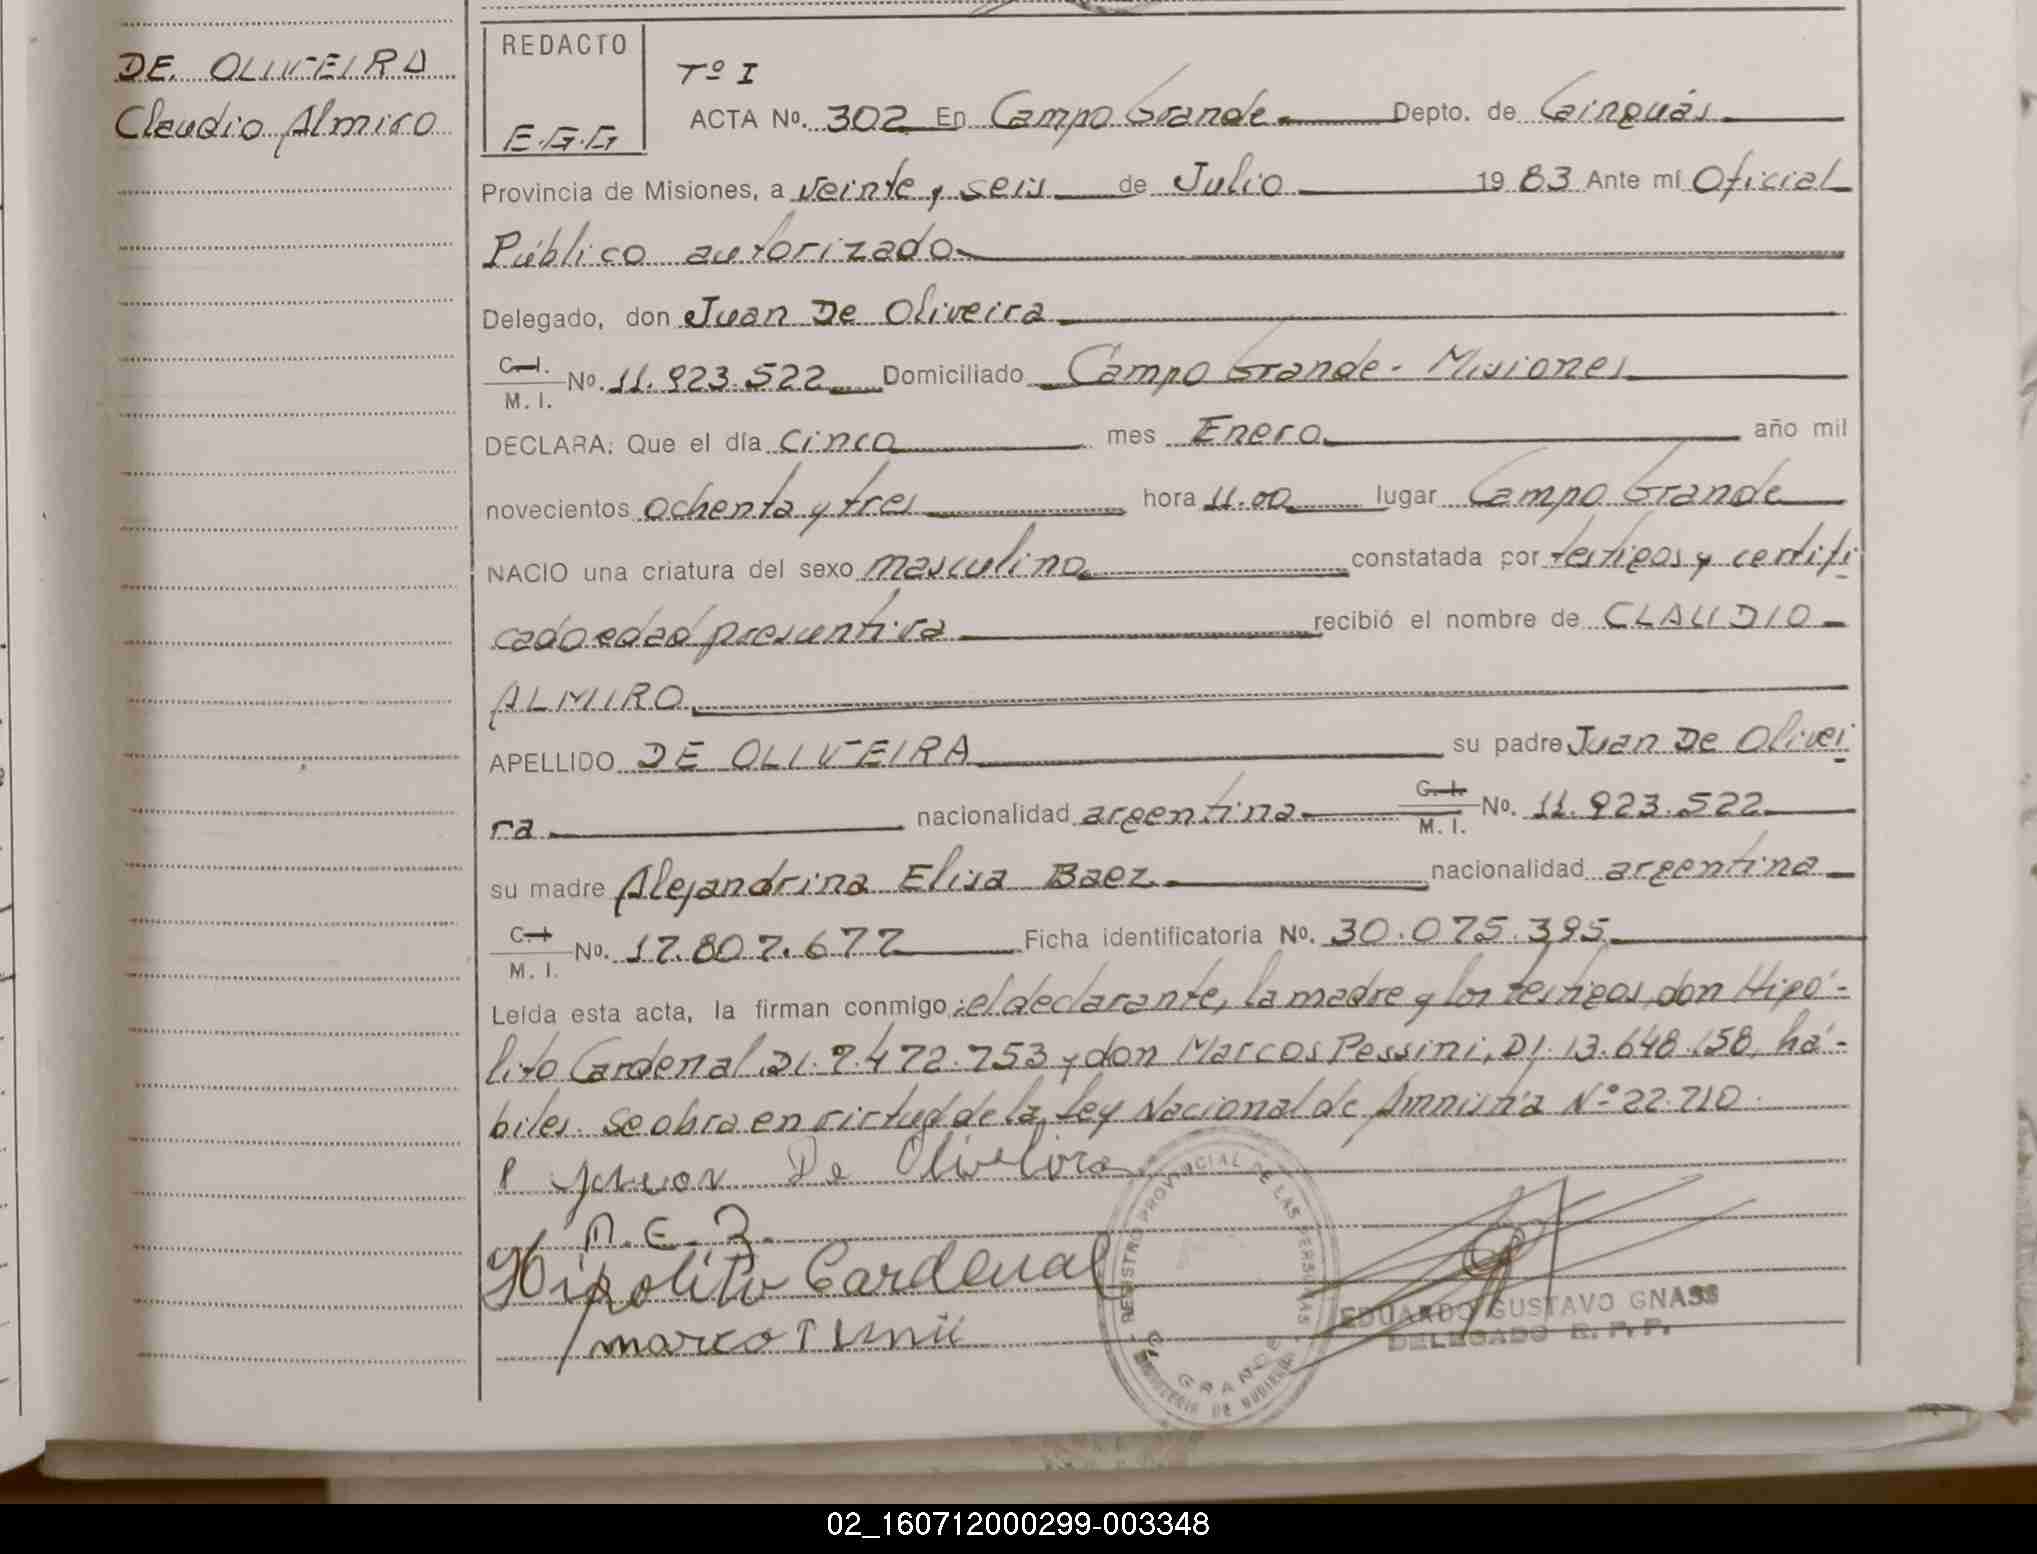 DE OLIVEIRA
Claudio Almiro
REDACTO
E.G.G
Tº I
ACTA No. 302 En Campo Grande Depto. de Cainguás
Provincia de Misiones, a veinte y seis de Julio 19 83 Ante mí Oficial
Público autorizado
Delegado, don Juan De Oliveira
C.I.
M. I.
No. 11.923.522 Domiciliado Campo Grande - Misiones
DECLARA: Que el día cinco mes Enero año mil
novecientos ochenta y tres hora 11.00 lugar Campo Grande
NACIO una criatura del sexo masculino constatada por testigos y certifi
cado edad presuntiva recibió el nombre de CLAUDIO
ALMIRO
APELLIDO DE OLIVEIRA su padre Juan De Olivei
ra nacionalidad argentina C.I. M. I. No. 11.923.522
su madre Alejandrina Elisa Baez nacionalidad argentina
C.I.
M. I.
No. 17.807.677 Ficha identificatoria No. 30.075.395
Leída esta acta, la firman conmigo: el declarante, la madre y los testigos, don Hipó-
lito Cardenal DI. 7.472.753 y don Marcos Pessini, DI. 13.648.158, há-
biles. Se obra en virtud de la Ley Nacional de Amnistía Nº 22.710.
Juan De Oliveira
A.E.B.
Hipolito Cardenal
REGISTRO PROVINCIAL DE LAS PERSONAS
GRANDE
EDUARDO GUSTAVO GNASS
DELEGADO R. P. P.
02_160712000299-003348